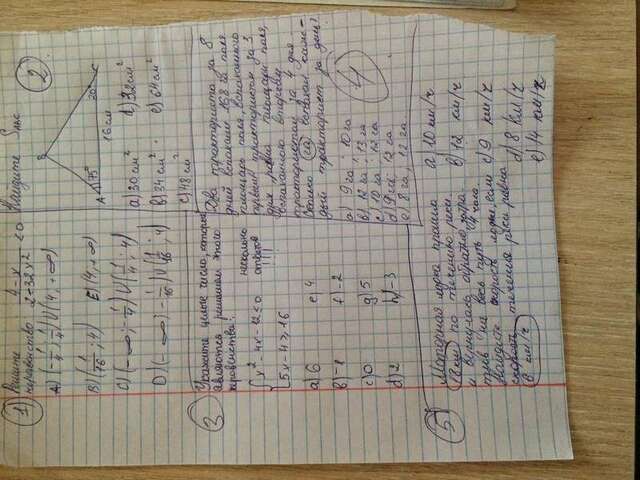 1) Решите неравенство (4-x)/(2-32x²) <0
A) (-1/4; 1/4) U (4, +∞)
B) (1/16; 4) E) (4, +∞)
C) (-∞; -1/4) U (1/4; 4)
D) (-∞; -1/16) U (1/16; 4)
Найдите Sавс
2
B
A 75° 30° C
16 см
a) 30 см² d) 32 см²
b) 34 см² e) 64 см²
c) 48 см²
3
Укажите целые числа, которые
являются решением этого
неравенства:
несколько
ответов
!!!
{ x²-4x-12≤0
5x-4≥16
a) 6 e) 4
b) -1 f) -2
c) 0 g) 5
d) 2 h) -3
Два тракториста за 8
дней вспахали 168 га поля
площадь поля, вспаханного
первым трактористом за 3
дня, равна площади поля,
вспаханного вторым
трактористом за 4 дня.
Сколько га вспахал каж-
дый тракторист за день?
4
a) 9 га; 10 га
b) 12 га; 13 га
c) 10 га; 12 га
d) 9 га; 12 га
e) 8 га; 12 га
5
Моторная лодка прошла
18 км по течению реки
и вернулась обратно, затра-
тив на весь путь 4 часа.
Найдите скорость лодки, если
скорость течения реки равна
км/ч
a) 10 км/ч
b) 12 км/ч
c) 9 км/ч
d) 8 км/ч
e) 14 км/ч